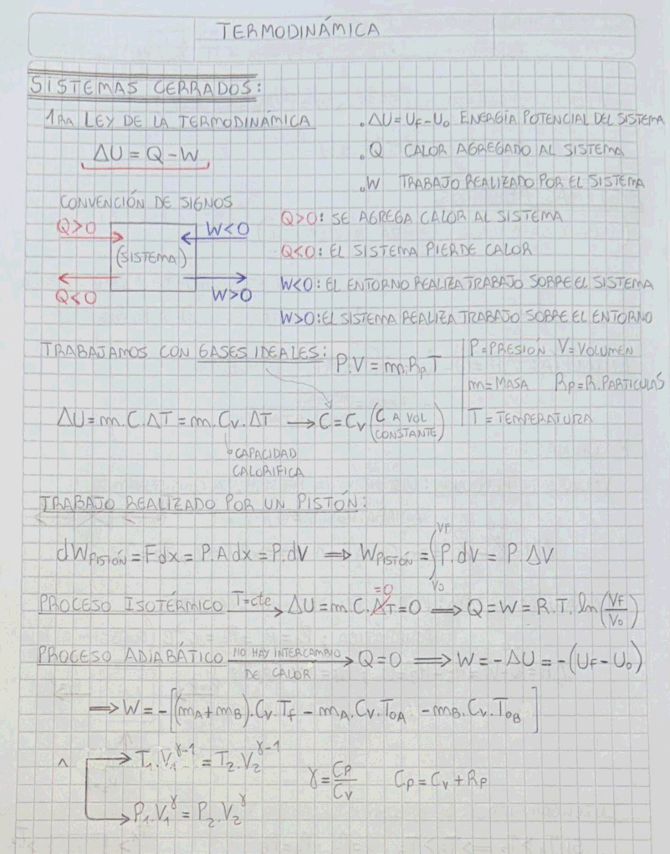 TERMODINÁMICA
SISTEMAS CERRADOS:
1RA LEY DE LA TERMODINÁMICA
ΔU = Q - W
. ΔU = UF - U0 ENERGÍA POTENCIAL DEL SISTEMA
. Q CALOR AGREGADO AL SISTEMA
. W TRABAJO REALIZADO POR EL SISTEMA
CONVENCIÓN DE SIGNOS
Q>0 W<0
(SISTEMA)
Q<0 W>0
Q>0: SE AGREGA CALOR AL SISTEMA
Q<0: EL SISTEMA PIERDE CALOR
W<0: EL ENTORNO REALIZA TRABAJO SOBRE EL SISTEMA
W>0: EL SISTEMA REALIZA TRABAJO SOBRE EL ENTORNO
TRABAJAMOS CON GASES IDEALES: P.V = m.Rp T
P=PRESIÓN V=VOLUMEN
m=MASA Rp=R.PARTICULAS
T=TEMPERATURA
ΔU = m.C.ΔT = m.Cv.ΔT → C=Cv (C A VOL CONSTANTE)
CAPACIDAD
CALORIFICA
TRABAJO REALIZADO POR UN PISTÓN:
dW PISTÓN = Fdx = P.A dx = P.dV ⇒ W PISTÓN = ∫V0^VF P.dV = P.ΔV
PROCESO ISOTÉRMICO T=cte → ΔU = m.C.ΔT = 0 =0 ⇒ Q = W = R.T.ln(VF/V0)
PROCESO ADIABÁTICO NO HAY INTERCAMBIO DE CALOR → Q=0 ⇒ W = -ΔU = -(UF - U0)
⇒ W = -[(mA+mB).Cv.Tf - mA.Cv.T0A - mB.Cv.T0B]
^ → T1.V1^γ-1 = T2.V2^γ-1
γ = Cp/Cv Cp = Cv + Rp
→ P1.V1^γ = P2.V2^γ